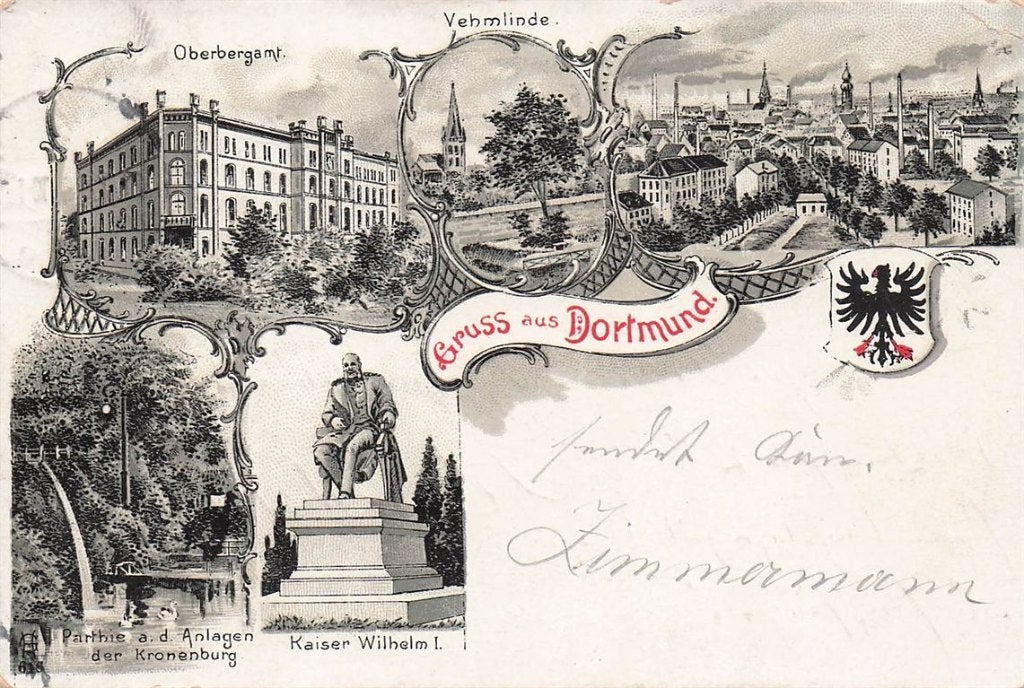 Vehmlinde.
Oberbergamt.
Gruss aus Dortmund.
sendet
Zimmermann
Parthie a. d. Anlagen
der Kronenburg
Kaiser Wilhelm I.